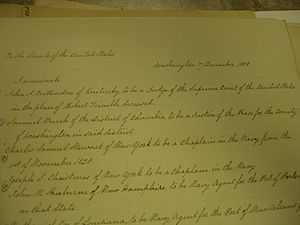 To the Senate of the United States
Washington 17 December 1828
I nominate
John J. Crittenden of Kentucky to be a Judge of the Supreme Court of the United States
in the place of Robert Trimble deceased.
Samuel Burch of the District of Columbia to be a Justice of the Peace for the County
of Washington in said district
Charles Samuel Stewart of New York to be a Chaplain in the Navy from the
1st of November 1828
Joseph S. Christmas of New York to be a Chaplain in the Navy
John N. of New Hampshire, to be Navy Agent for the Port of
in that State
of Louisiana, to be Navy Agent for the Port of New Orleans